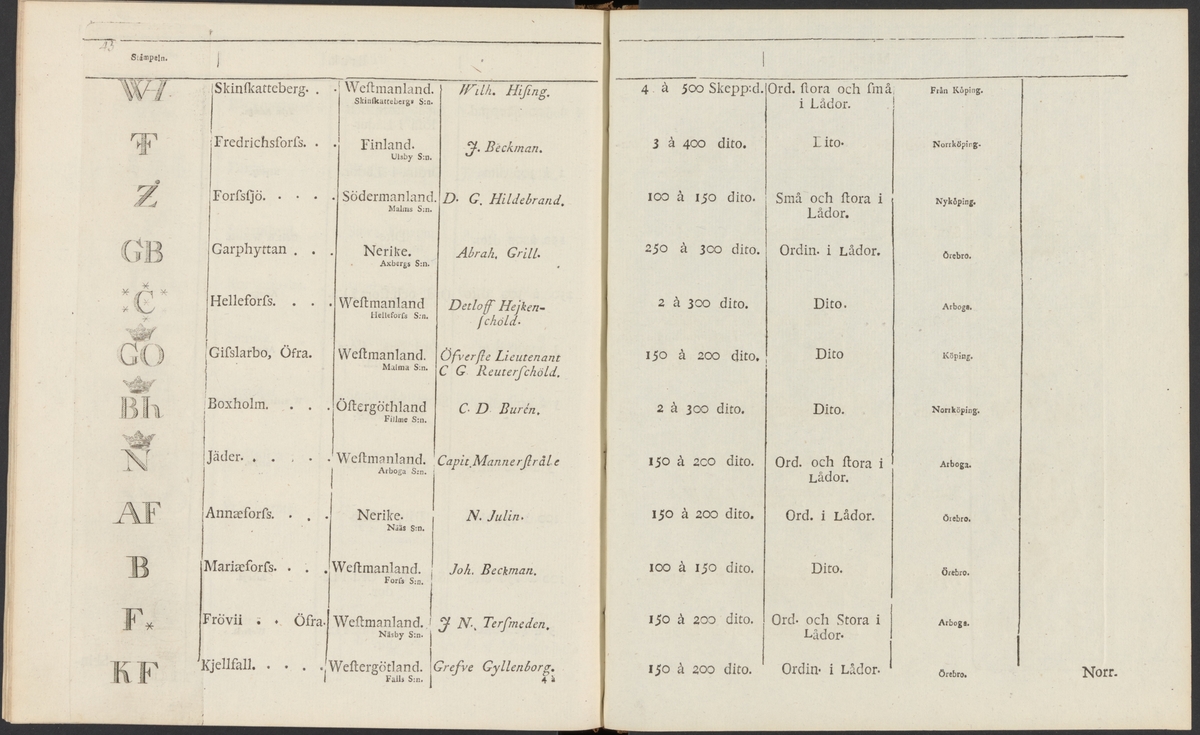 13
Stämpeln.
WH Skinſkatteberg. . . Weſtmanland. Wilh. Hiſing. 4 à 500 Skepp:d. Ord. ſtora och ſmå Från Köping.
Skinſkattebergs S:n. i Lådor.
F Fredrichsforſs. . . Finland. J. Beckman. 3 à 400 dito. Dito. Norrköping.
Ulsby S:n.
Z Forſsſjö. . . . . Södermanland. D. G. Hildebrand. 100 à 150 dito. Små och ſtora i Nyköping.
Malms S:n. Lådor.
GB Garphyttan . . . Nerike. Abrah. Grill. 250 à 300 dito. Ordin. i Lådor. Örebro.
Axbergs S:n.
*C* Helleforſs. . . . Weſtmanland Detloff Hejken- 2 à 300 dito. Dito. Arboga.
Helleforſs S:n. ſchöld.
GO Giſslarbo, Öfra. Weſtmanland. Öfverſte Lieutenant 150 à 200 dito. Dito Köping.
Malma S:n. C G Reuterſchöld.
Bh Boxholm. . . . Öſtergöthland C. D Burén. 2 à 300 dito. Dito. Norrköping.
S:n.
N Jäder. . . . . . Weſtmanland. Capit. Mannerſtråle 150 à 200 dito. Ord. och ſtora i Arboga.
Arboga S:n. Lådor.
AF Annæforſs. . . . Nerike. N. Julin. 150 à 200 dito. Ord. i Lådor. Örebro.
Nääs S:n.
B Mariæforſs. . . . Weſtmanland. Joh. Beckman. 100 à 150 dito. Dito. Örebro.
Forſs S:n.
F* Frövii . . Öfra. Weſtmanland. J N. Terſmeden. 150 à 200 dito. Ord. och Stora i Arboga.
Näsby S:n. Lådor.
KF Kjellfall. . . . . Weſtergötland. Grefve Gyllenborg. 150 à 200 dito. Ordin. i Lådor. Örebro.
Falls S:n. 4 à Norr.